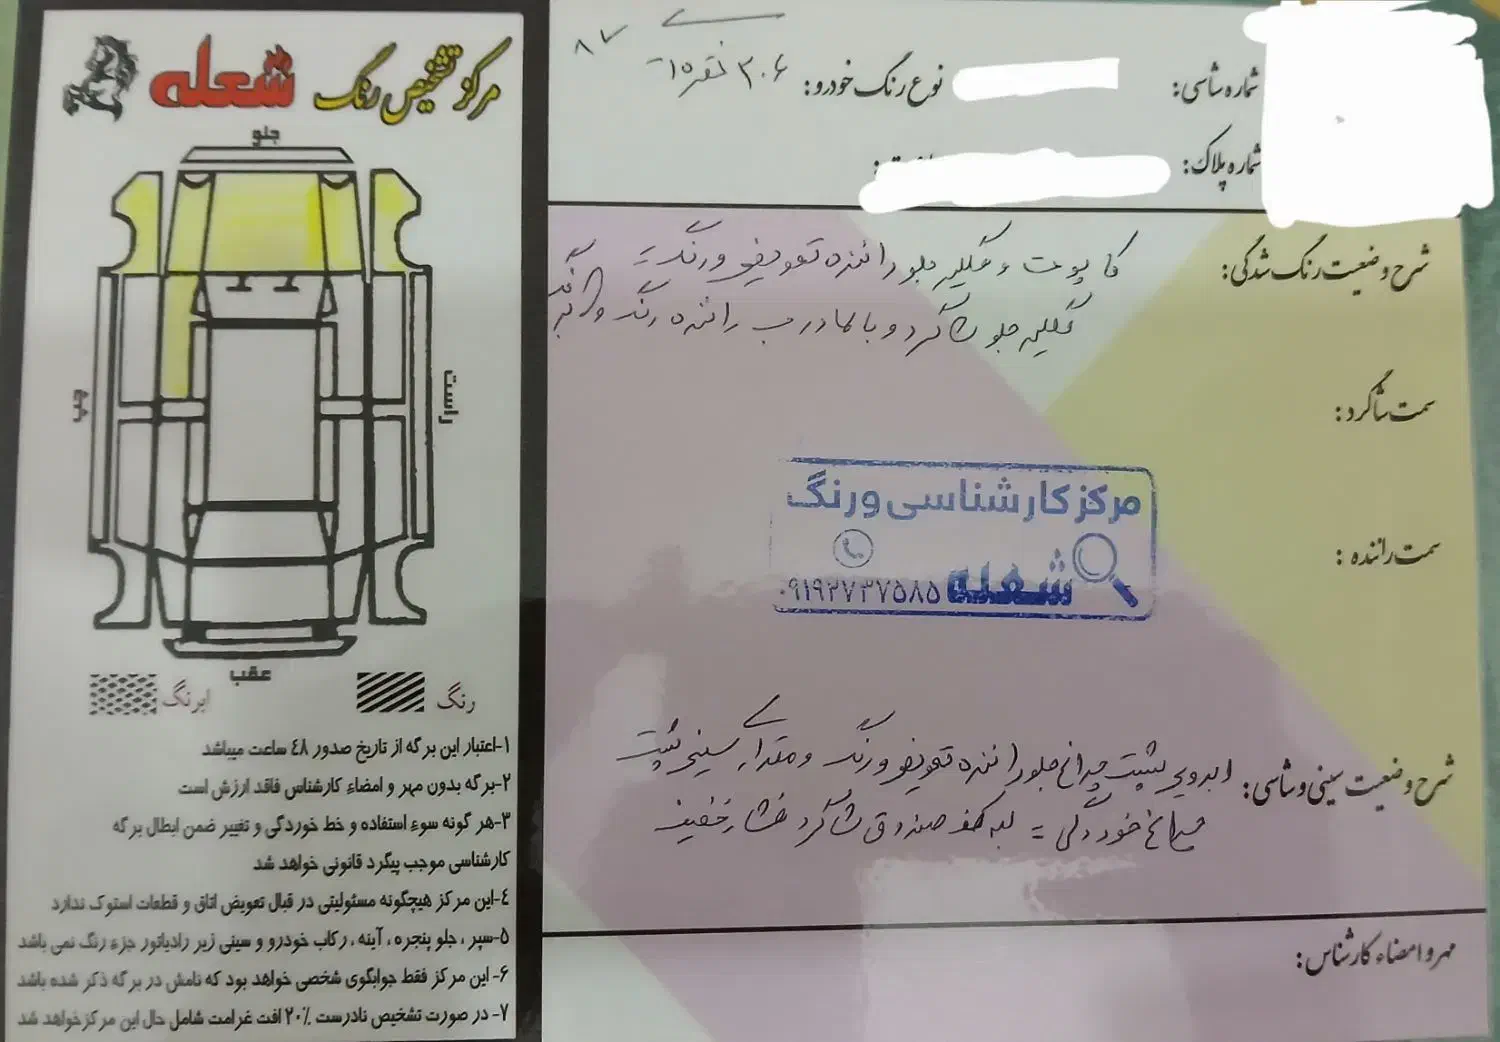 مرکز تشخیص رنگ شعله
جلو
راست
عقب
رنگ
ابرنگ
۱-اعتبار این برگه از تاریخ صدور ٤٨ ساعت میباشد
۲-برگه بدون مهر و امضاء کارشناس فاقد ارزش است
۳-هر گونه سوء استفاده و خط خوردگی و تغییر ضمن ابطال برگه
کارشناسی موجب پیگرد قانونی خواهد شد
٤-این مرکز هیچگونه مسئولیتی در قبال تعویض اتاق و قطعات استوک ندارد
۵-سپر ، جلو پنجره ، آینه ، رکاب خودرو و سینی زیر رادیاتور جزء رنگ نمی باشد
۶- این مرکز فقط جوابگوی شخصی خواهد بود که نامش در برگه ذکر شده باشد
۷- در صورت تشخیص نادرست ۲۰٪ افت غرامت شامل حال این مرکز خواهد شد
شماره شاسی:
نوع رنگ خودرو: ۲۰۶ نقره ای
۸۷
شماره پلاک:
شرح وضعیت رنگ شدگی: کاپوت و گلگیر جلو راننده تعویض و رنگ =
گلگیر جلو شاگرد و بالا درب راننده رنگ
سمت شاگرد:
سمت راننده:
مرکز کارشناسی و رنگ
شعله
۰۹۱۹۲۷۳۷۵۸۵
شرح وضعیت سینی و شاسی: ابرویی پشت چراغ جلو راننده تعویض و رنگ و مقداری سینی پشت
چراغ خوردگی = لبه کف صندوق شاگرد فشار خفیف
مهر و امضاء کارشناس: